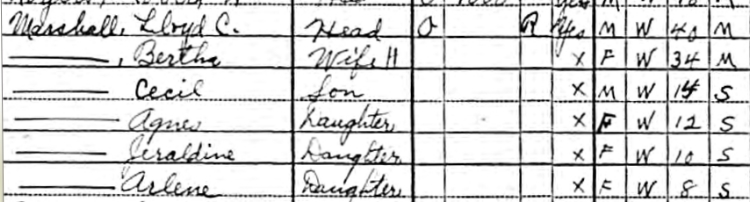 Marshall, Lloyd C. Head O R Yes M W 40 M
———, Bertha Wife H X F W 34 M
——— Cecil Son X M W 14 S
——— Agnes Daughter X F W 12 S
——— Jeraldine Daughter X F W 10 S
——— Arlene Daughter X F W 8 S